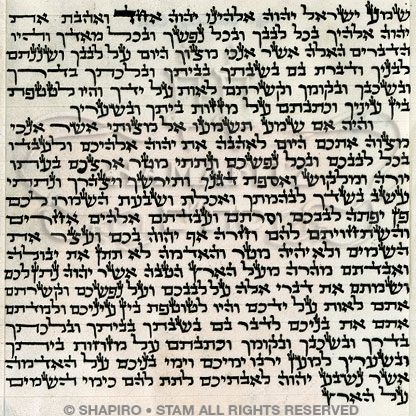 שמע ישראל יהוה אלהינו יהוה אחד ואהבת את
יהוה אלהיך בכל לבבך ובכל נפשך ובכל מאדך והיו
הדברים האלה אשר אנכי מצוך היום על לבבך ושננתם
לבניך ודברת בם בשבתך בביתך ובלכתך בדרך
ובשכבך ובקומך וקשרתם לאות על ידך והיו לטטפת
בין עיניך וכתבתם על מזזות ביתך ובשעריך
והיה אם שמע תשמעו אל מצותי אשר אנכי
מצוה אתכם היום לאהבה את יהוה אלהיכם ולעבדו
בכל לבבכם ובכל נפשכם ונתתי מטר ארצכם בעתו
יורה ומלקוש ואספת דגנך ותירשך ויצהרך ונתתי
עשב בשדך לבהמתך ואכלת ושבעת השמרו לכם
פן יפתה לבבכם וסרתם ועבדתם אלהים אחרים
והשתחויתם להם וחרה אף יהוה בכם ועצר את
השמים ולא יהיה מטר והאדמה לא תתן את יבולה
ואבדתם מהרה מעל הארץ הטבה אשר יהוה נתן לכם
ושמתם את דברי אלה על לבבכם ועל נפשכם וקשרתם
אתם לאות על ידכם והיו לטוטפת בין עיניכם ולמדתם
אתם את בניכם לדבר בם בשבתך בביתך ובלכתך
בדרך ובשכבך ובקומך וכתבתם על מזוזות ביתך
ובשעריך למען ירבו ימיכם וימי בניכם על האדמה
אשר נשבע יהוה לאבתיכם לתת להם כימי השמים
על הארץ
© SHAPIRO - STAM ALL RIGHTS RESERVED